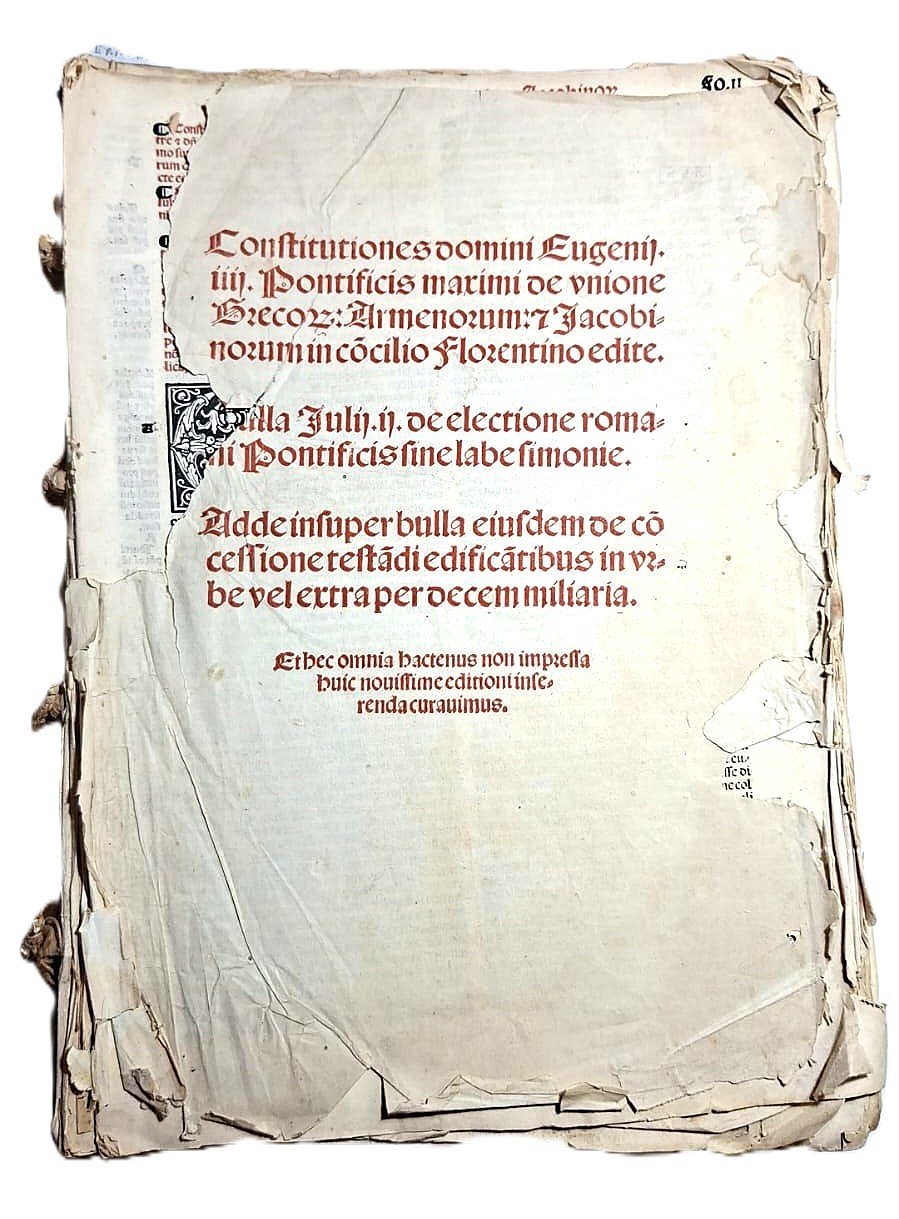 Fo.II
Constitutiones domini Eugenij.
iiij. Pontificis maximi de vnione
Grecoꝝ: Armenorum: ⁊ Jacobi-
norum in cōcilio Florentino edite.
ulla Julij.ij. de electione roma-
ni Pontificis sine labe simonie.
Adde insuper bulla eiusdem de cō
cessione testādi edificātibus in vr-
be vel extra per decem miliaria.
Et hec omnia hactenus non impressa
huic nouissime editioni inse-
renda curauimus.